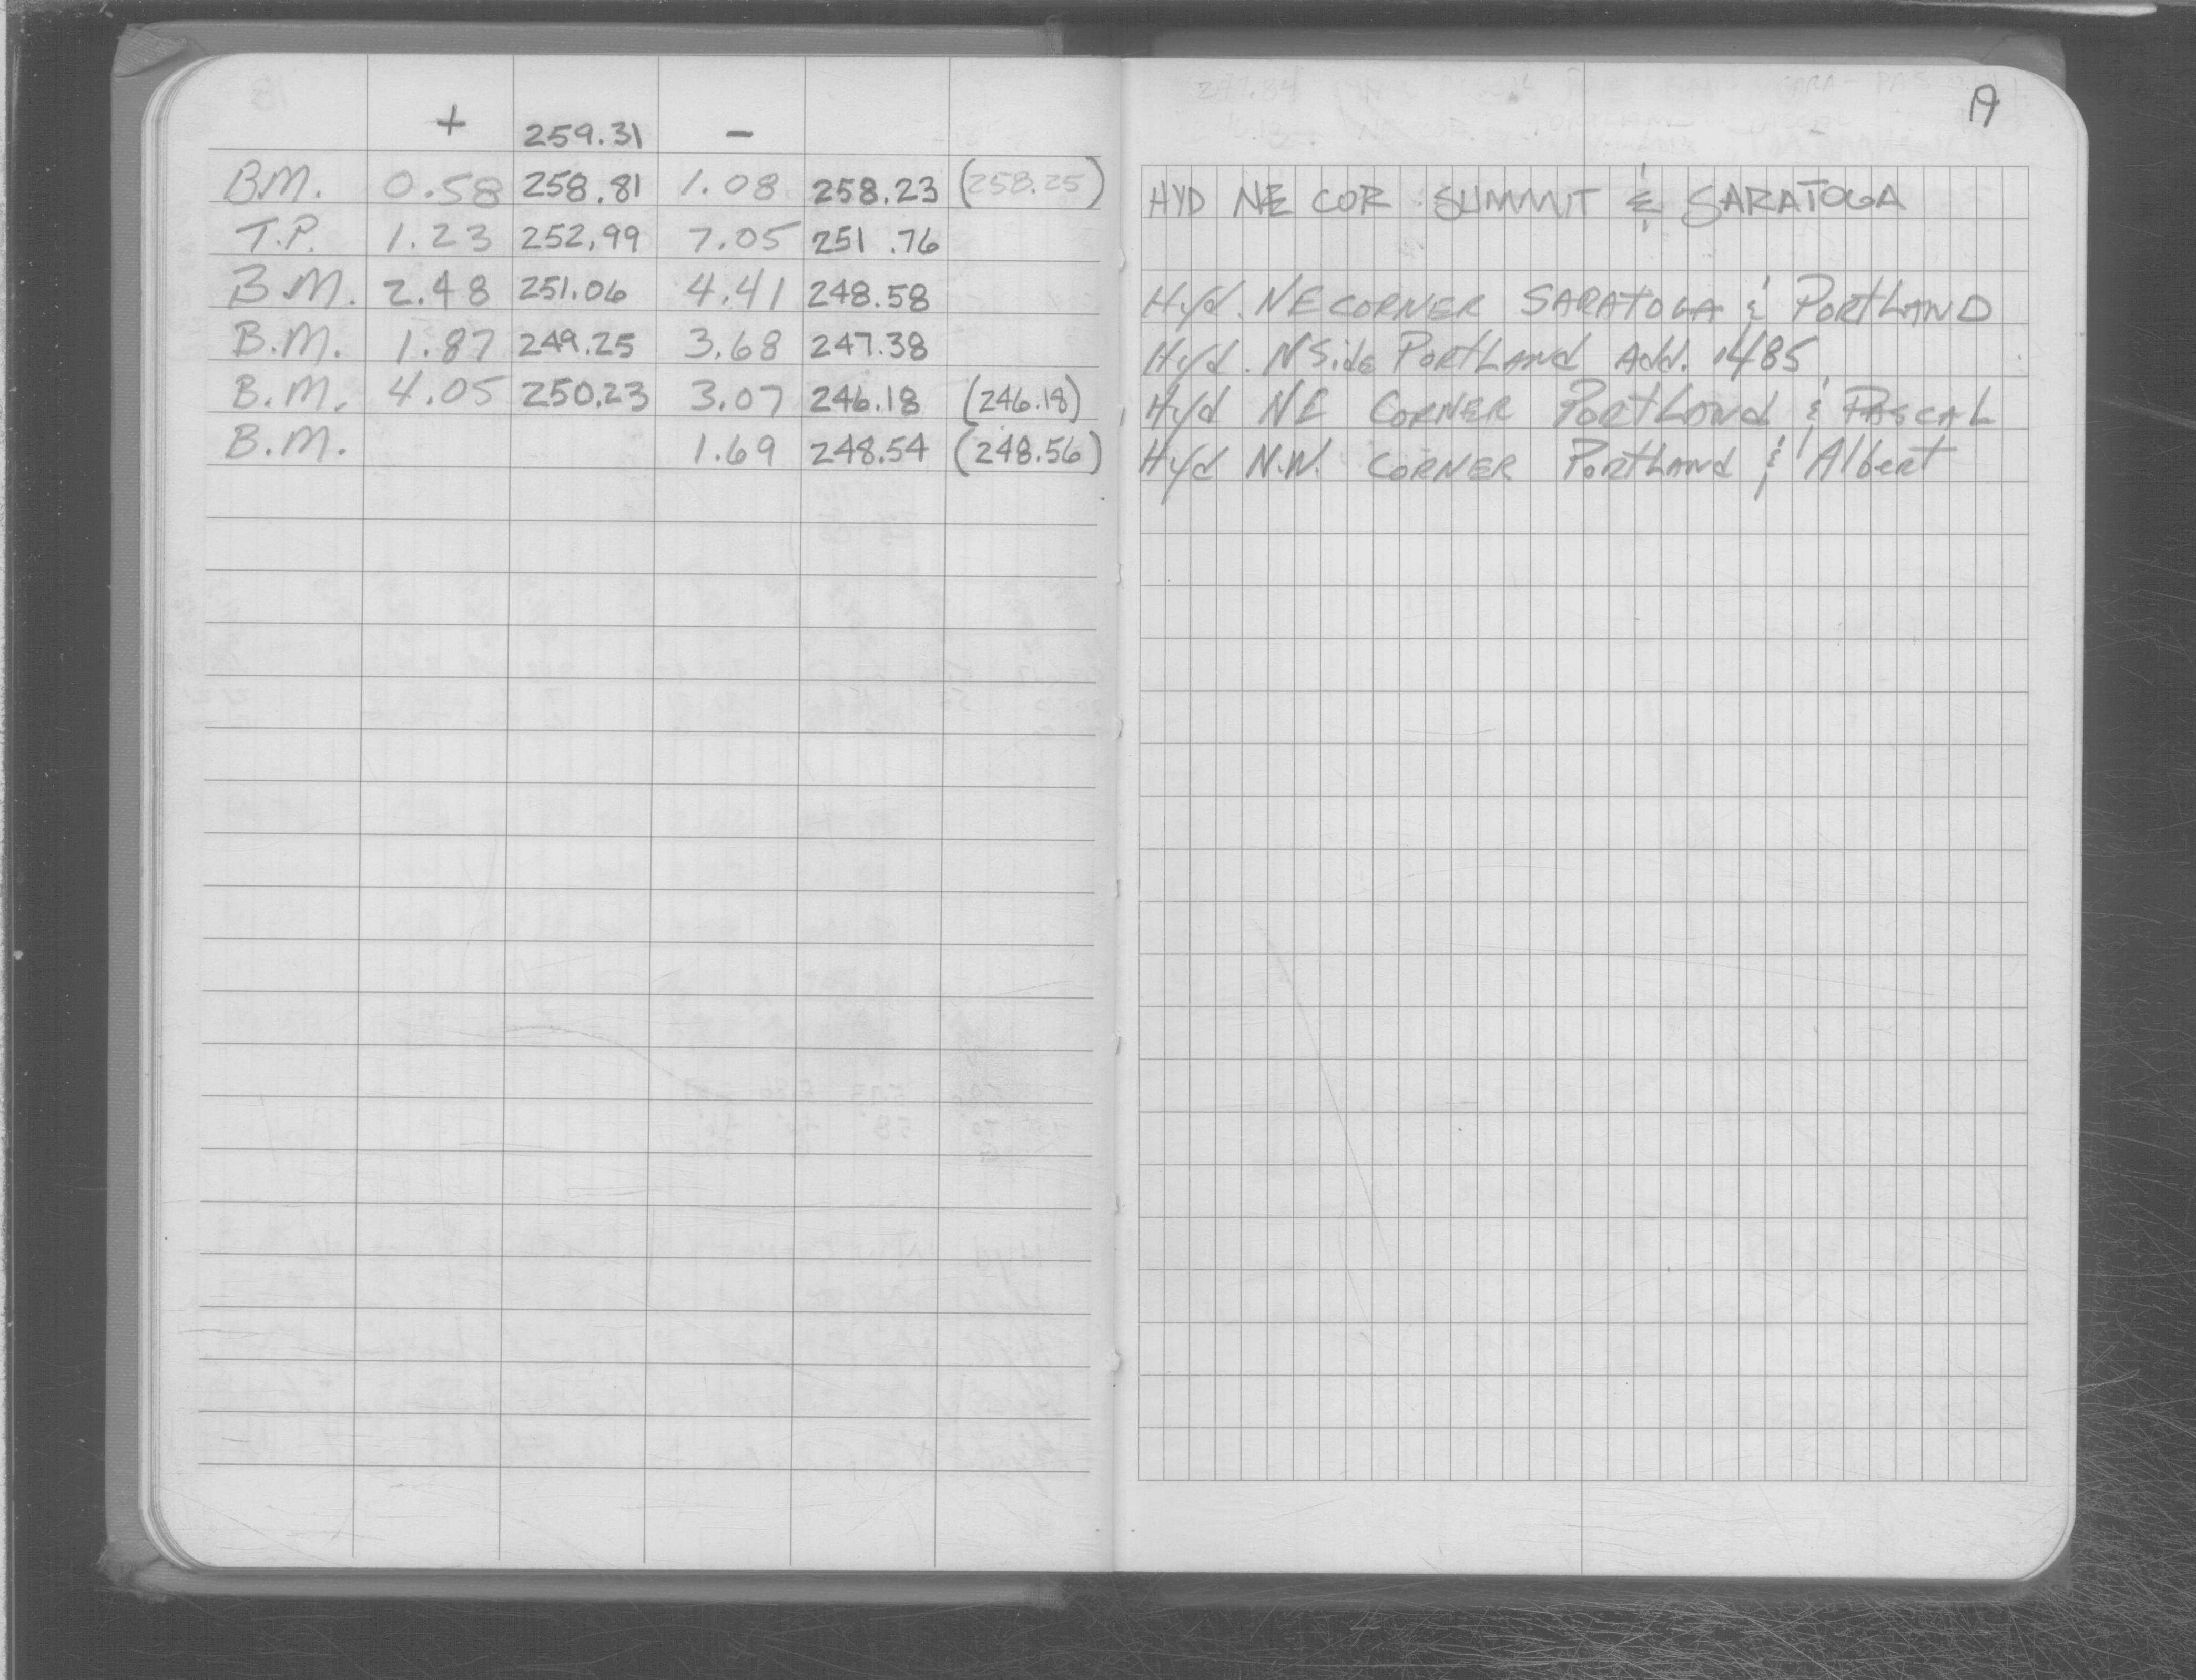 + 259.31 -
B.M. 0.58 258.81 1.08 258.23 (258.25)
T.P. 1.23 252.99 7.05 251.76
B.M. 2.48 251.06 4.41 248.58
B.M. 1.87 249.25 3.68 247.38
B.M. 4.05 250.23 3.07 246.18 (246.18)
B.M. 1.69 248.54 (248.56)
19
HYD NE COR SUMMIT & SARATOGA
Hyd. NE CORNER SARATOGA & PORTLAND
Hyd. N Side PORTLAND Add. 1485
Hyd NE CORNER PORTLAND & PASCAL
Hyd N.W. CORNER Portland & Albert